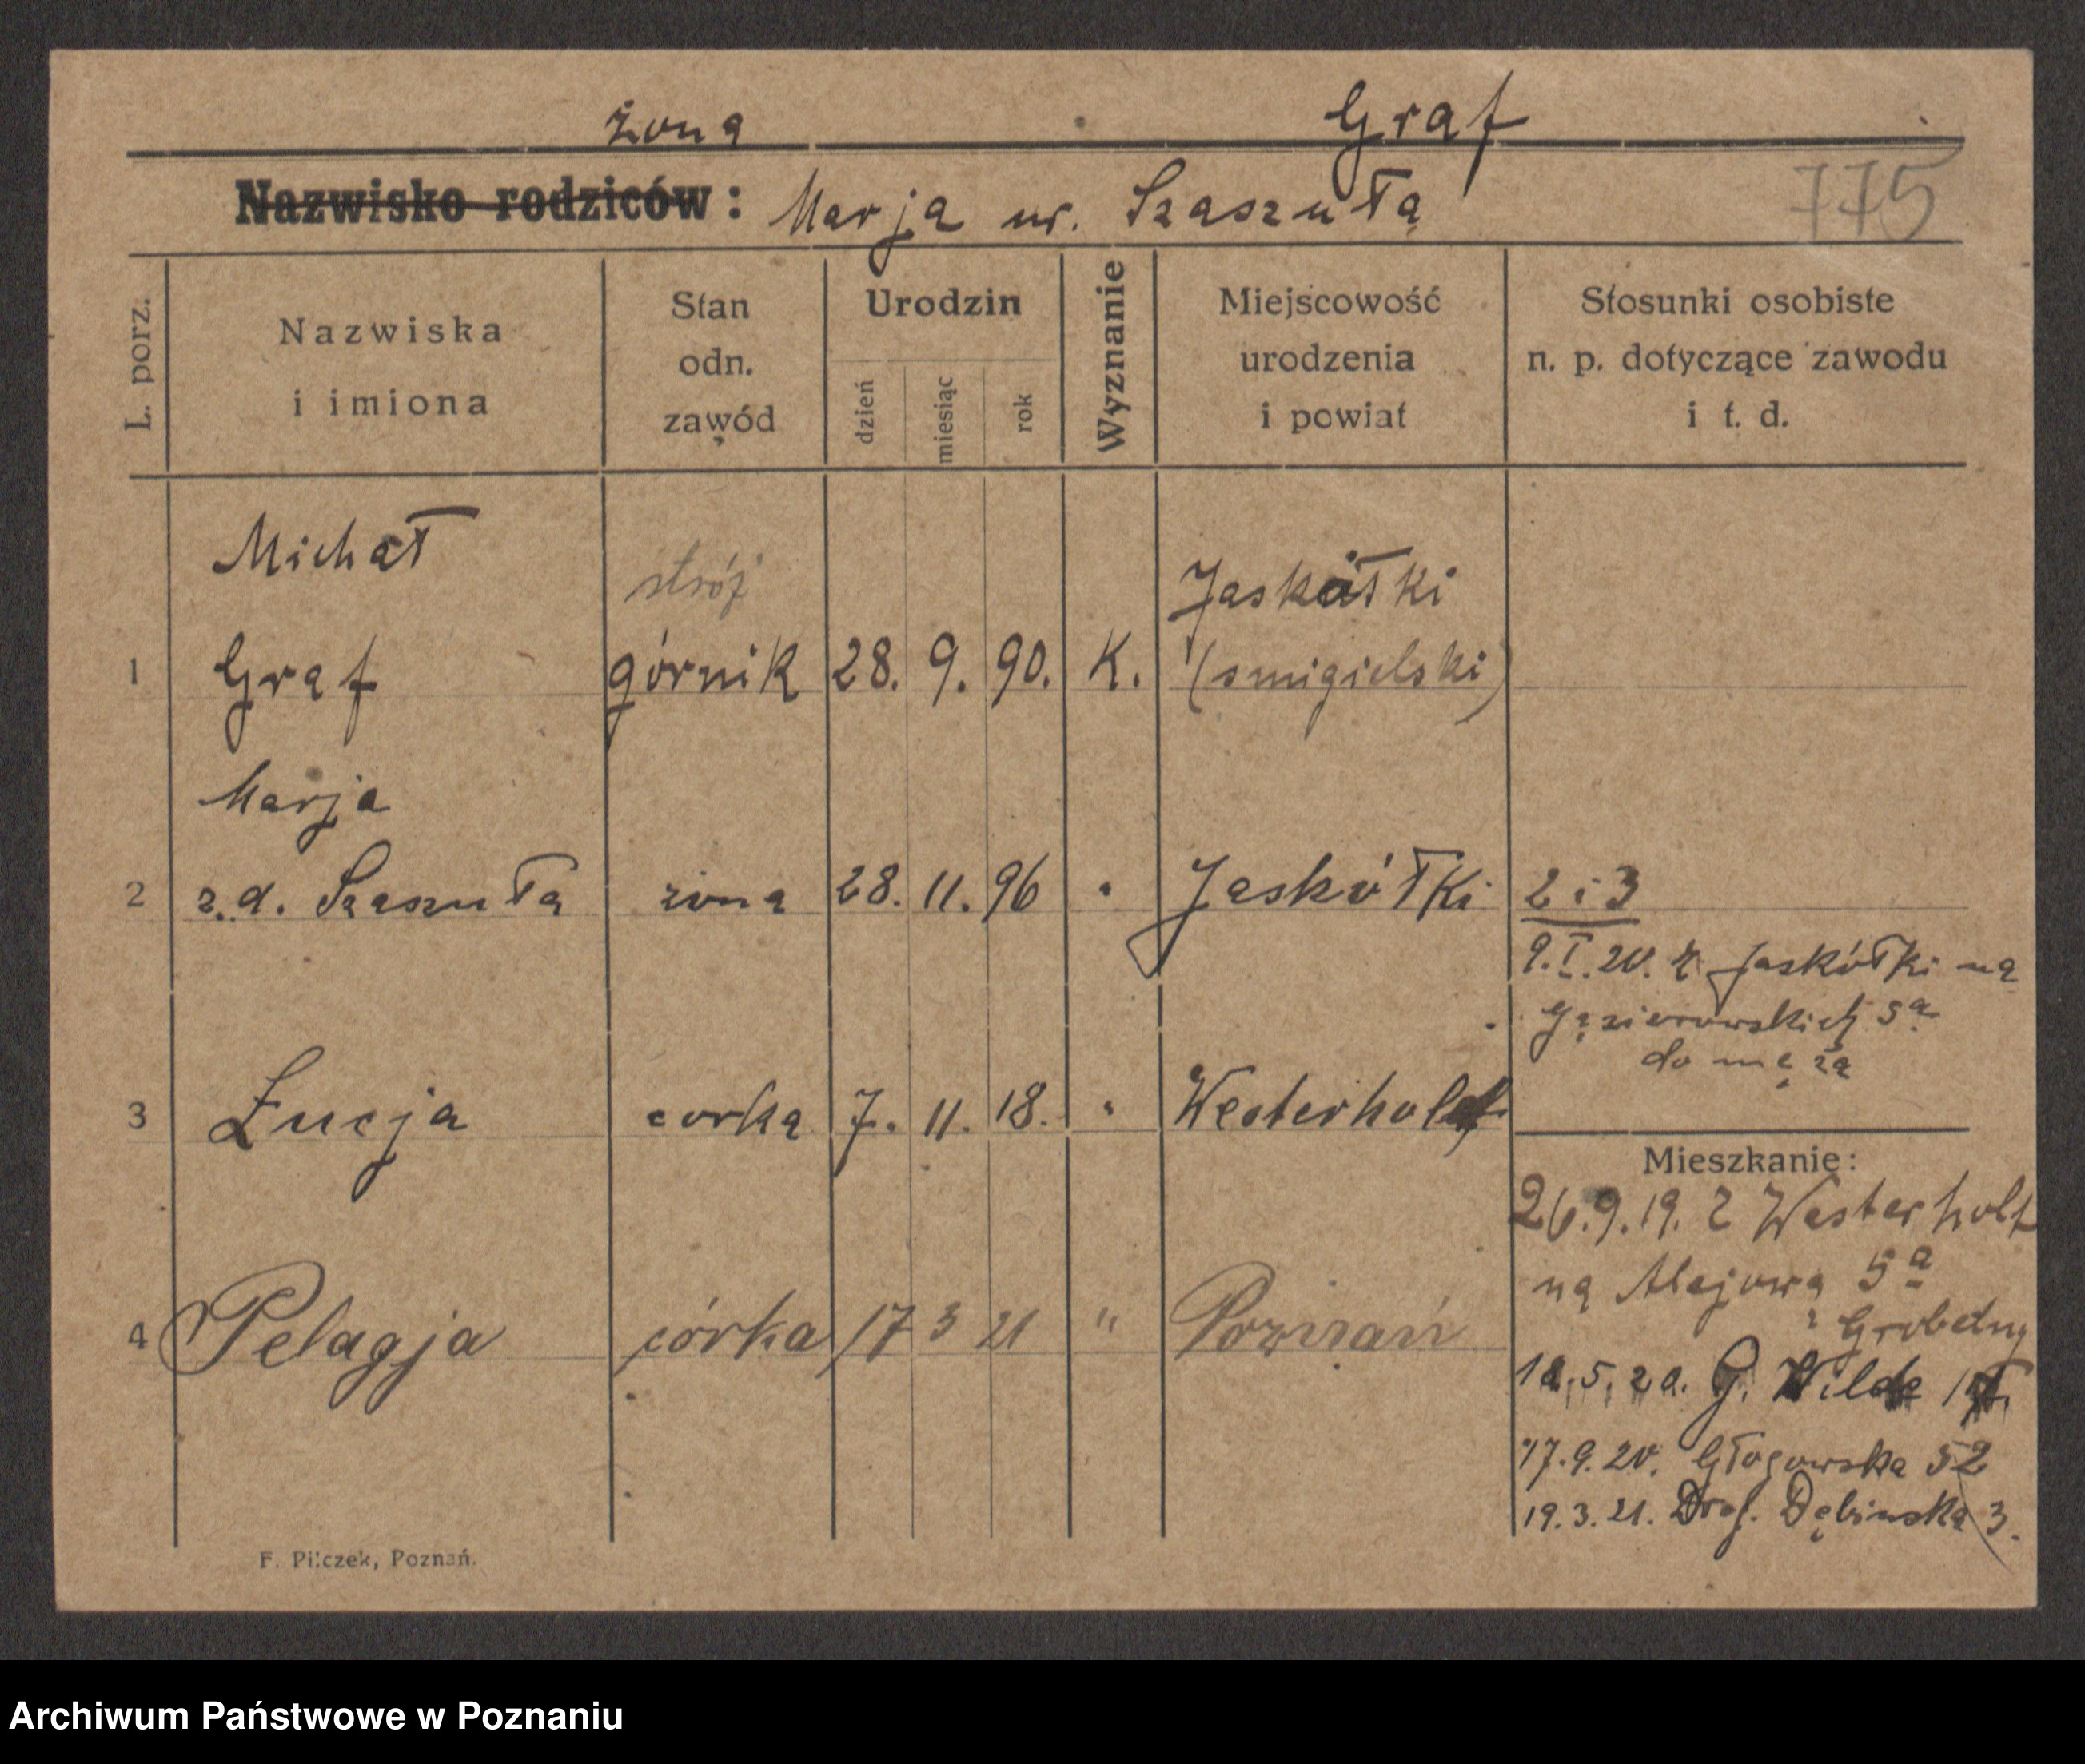 żona Graf
Nazwisko rodziców: Marja ur. Szaszuła
775
L. porz.
Nazwiska
i imiona
Stan
odn.
zawód
Urodzin
dzień
miesiąc
rok
Wyznanie
Miejscowość
urodzenia
i powiat
Stosunki osobiste
n. p. dotyczące zawodu
i t. d.
Michał stróż Jaskółki
1 Graf górnik 28. 9. 90. K. (smigielski)
Marja
2 z. d. Szaszuła żona 28. 11. 96 " Jaskółki
2 i 3
9.I.20. z Jaskółki na
Gąsiorowskich 5a
do męża
3 Łucja corka 7. 11. 18. " Westerholt
Mieszkanie:
26.9.19. z Westerholt
na Alejową 5a
4 Pelagja córka 17 3 21 " Poznań
5. 20. G. Wilda
17.9.20. Głogowska 52
19.3.21. Drog. Dębinska 3.
F. Pilczek, Poznań.
Archiwum Państwowe w Poznaniu